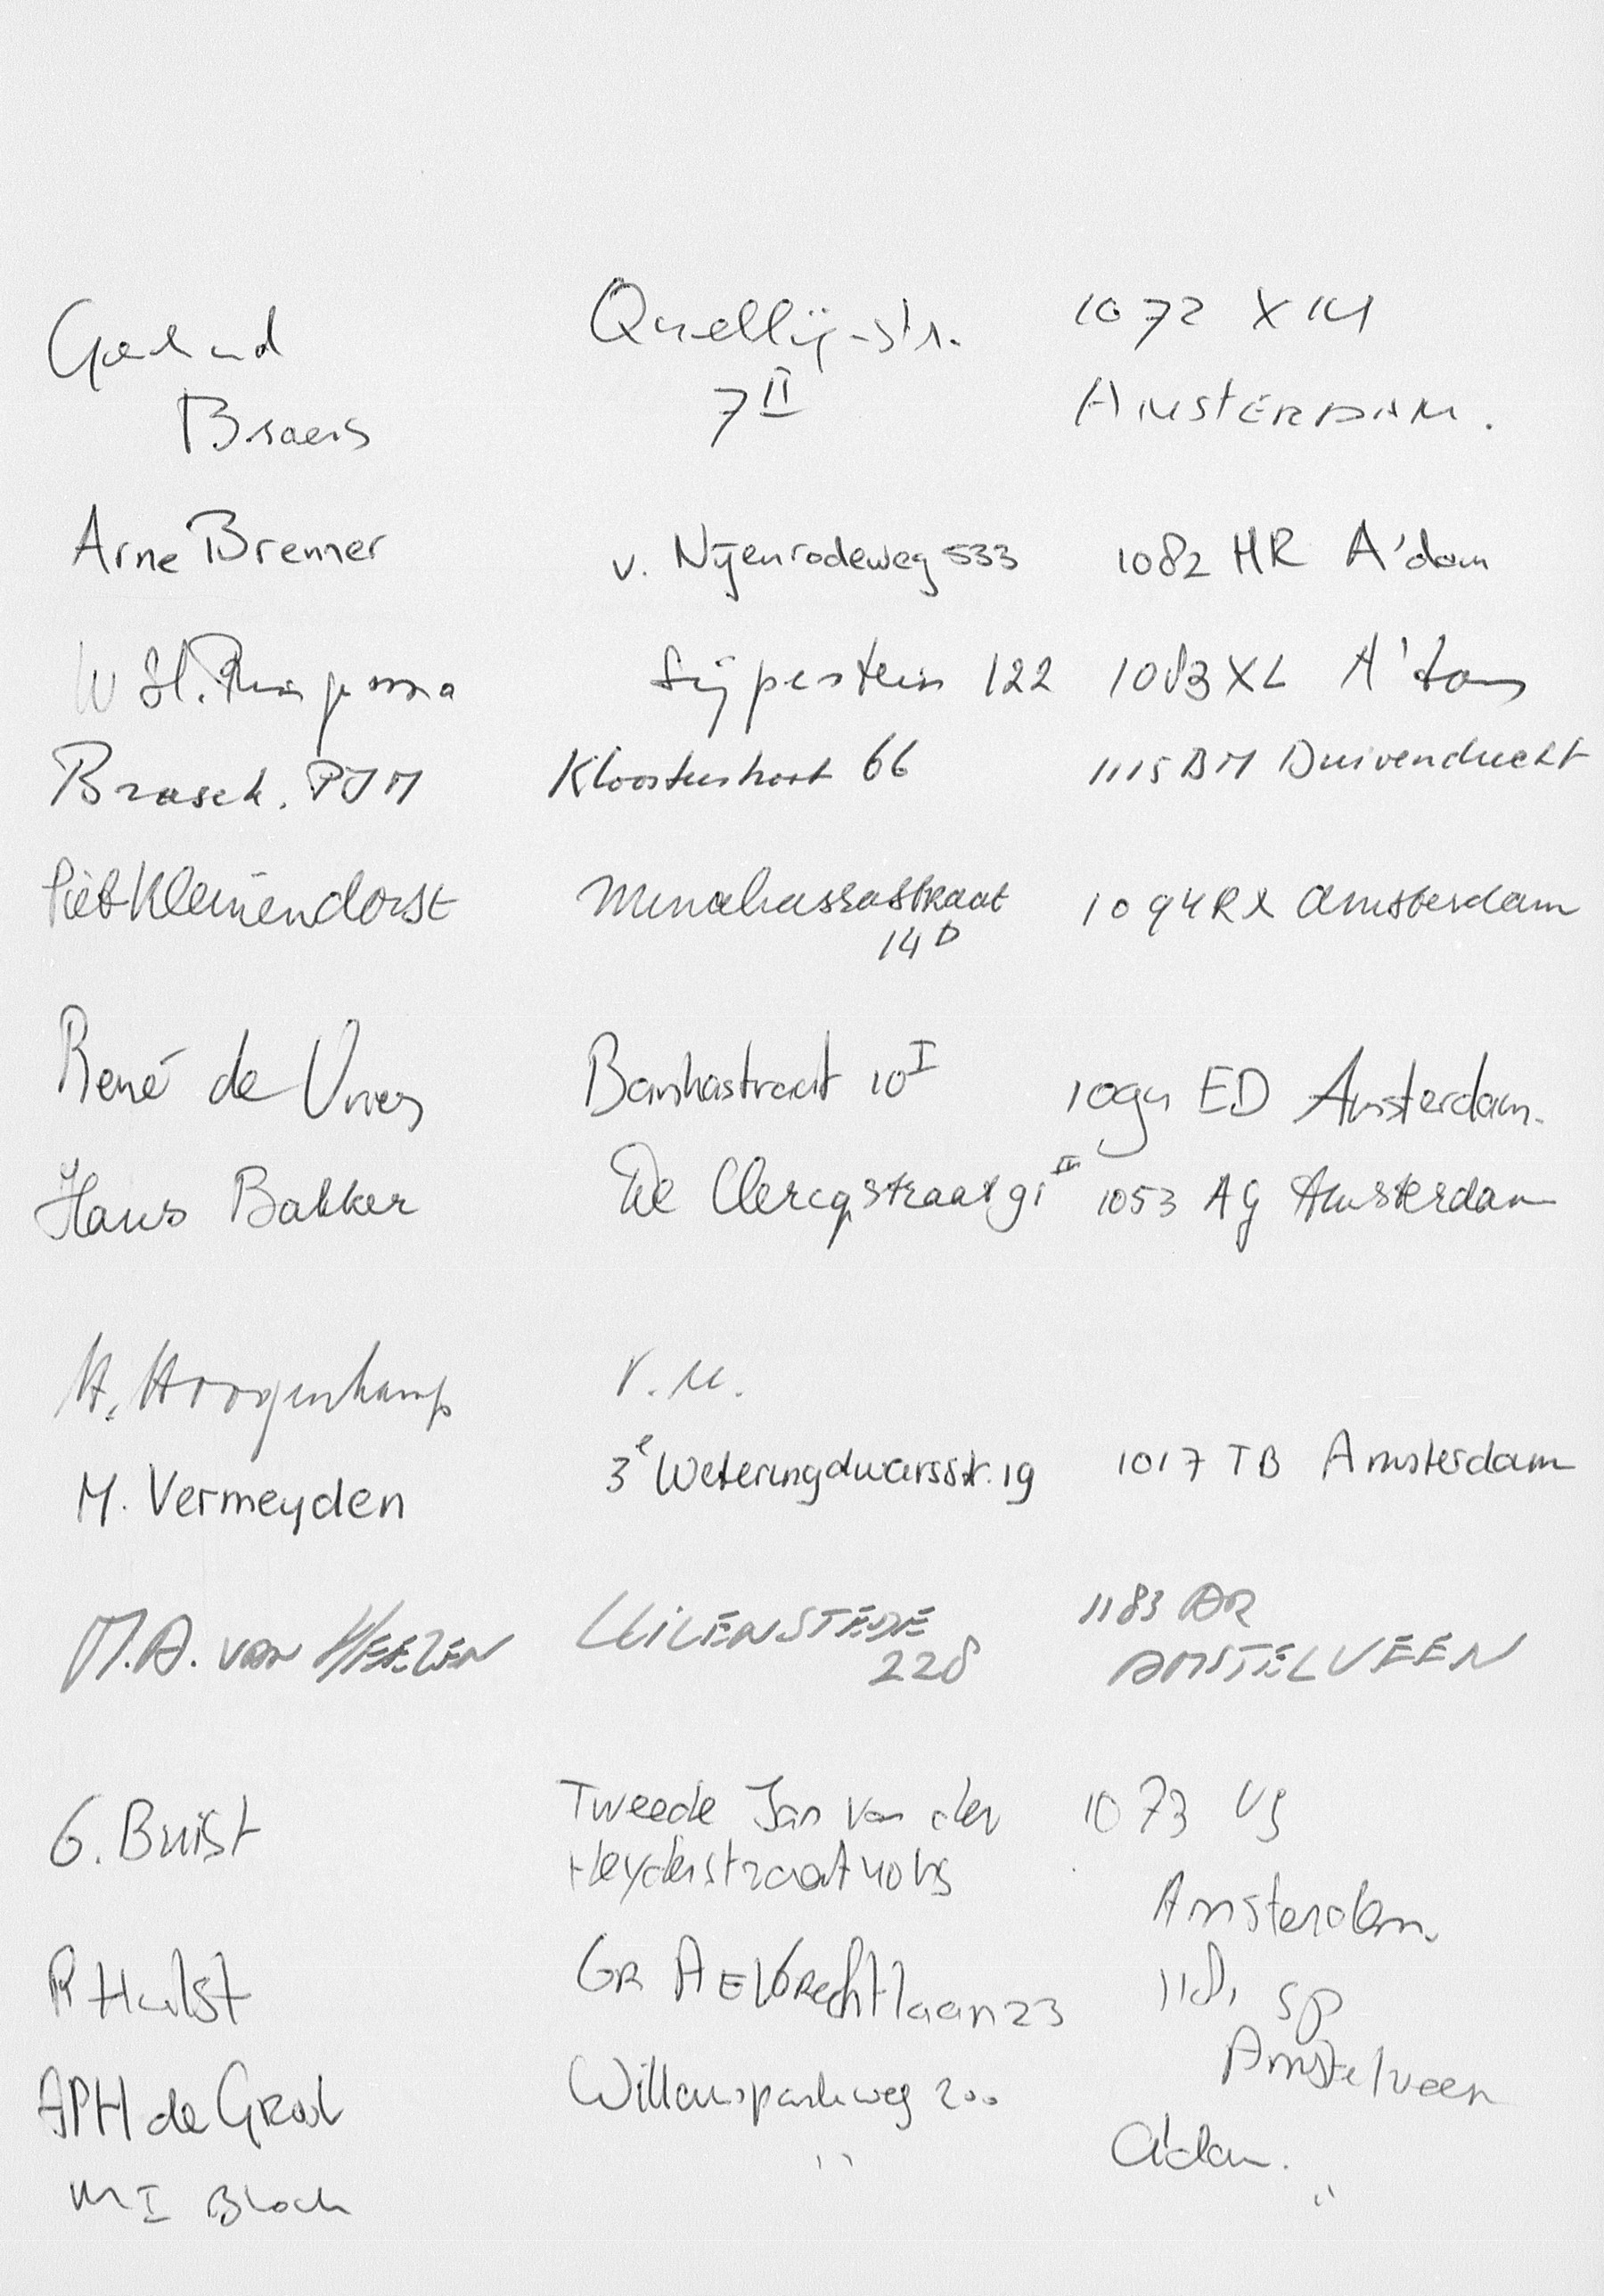 Quellijnstr. 1072 X
7 II AMSTERDAM.
Arne Brenner v. Nijenrodeweg 533 1082 HR A'dam
W H. Sijpestein 122 1083 XL A'dam
Brasch. PJM Kloosterhort 66 1115 BM Duivendrecht
Piet Kleinendorst Minahassastraat 1094 RX Amsterdam
14 D
René de Vries Bankastraat 10 I 1094 ED Amsterdam.
Hans Bakker De Clercqstraat 91 III 1053 AG Amsterdam
H. Hoogenkamp V.M.
M. Vermeyden 3e Weteringdwarsstr. 19 1017 TB Amsterdam
M.A. VAN HEEZEN UILENSTEDE 1183 AR
228 AMSTELVEEN
G. Buist Tweede Jan van der 1073 VS
Heydenstraat 40 hs
Amsterdam.
R Hulst GR AELbrechtlaan 23 1181 SP
Amstelveen
APH de Groot Willemsparkweg 200
A'dam.
M I Bloch " "